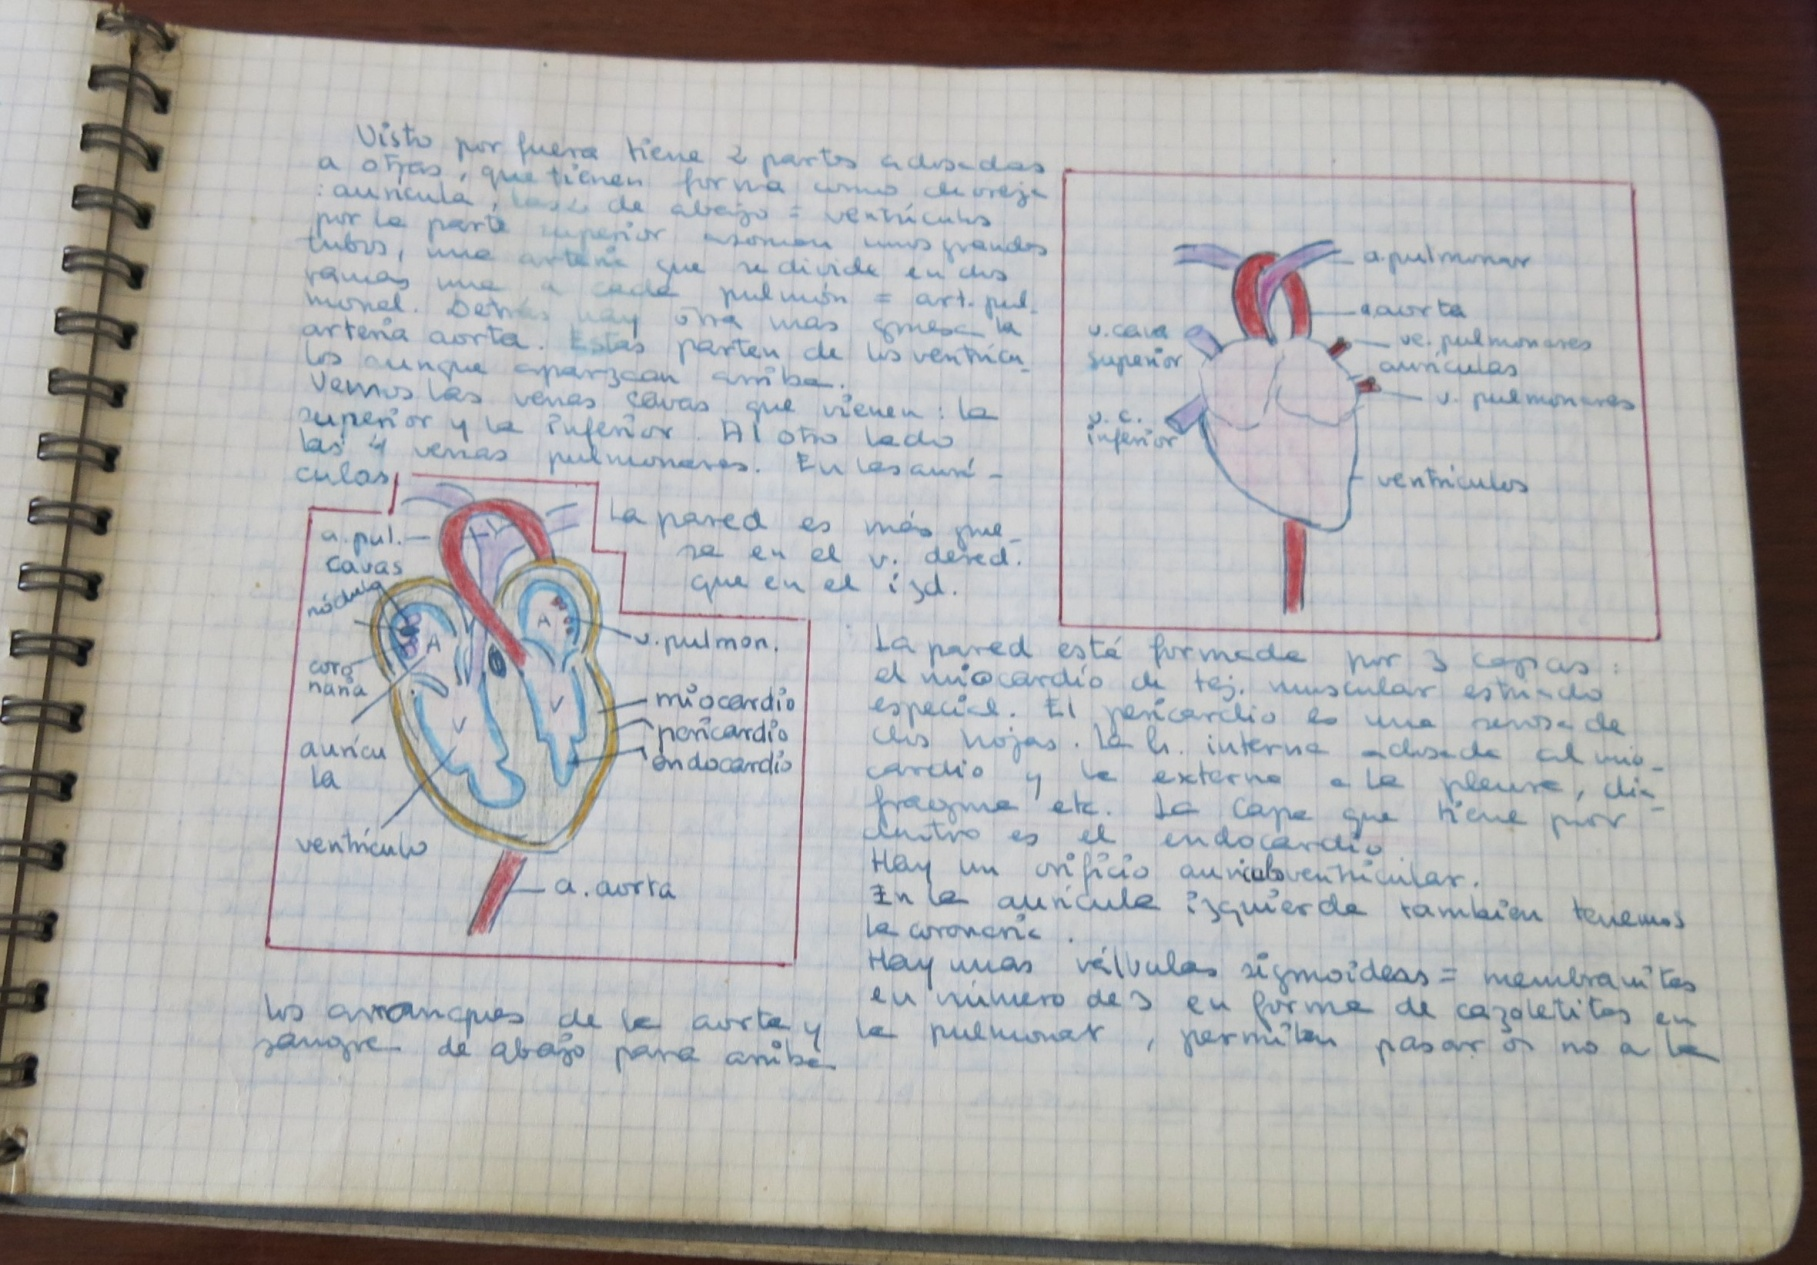 Visto por fuera tiene 2 partes adosadas
a otras, que tienen forma como de oreja
: aurícula, las de abajo = ventrículos
por la parte superior asoman unos grandes
tubos, una arteria que se divide en dos
ramas una a cada pulmón = art. pul-
monal. Detrás hay otra mas gruesa la
arteria aorta. Estas parten de los ventrícu-
los aunque aparzcan arriba.
Vemos las venas cavas que vienen: la
superior y la inferior. Al otro lado
las 4 venas pulmonares. En las aurí-
culas
La pared es más grue-
sa en el v. dered.
que en el izd.
a. pul.
cavas
nódulo
coro
naria
aurícu
la
ventrículo
A
A
V
V
v. pulmon.
miocardio
pericardio
endocardio
a. aorta
a. pulmonar
a aorta
v. cava
superior
ve. pulmonares
aurículas
v. pulmonares
v. c.
inferior
ventrículos
La pared está formada por 3 capas:
el miocardio de tej. muscular estriado
especial. El pericardio es una serosa de
dos hojas. La h. interna adosada al mio-
cardio y la externa a la pleura, dia-
fragma etc. La capa que tiene por
dentro es el endocardio
Hay un orificio auriculoventricular.
En la aurícula izquierda también tenemos
la coronaria.
Hay unas válvulas sigmoideas = membranitas
en número de 3 en forma de cazoletitas en
los arranques de la aorta y la pulmonar, permiten pasar o no a la
sangre de abajo para arriba